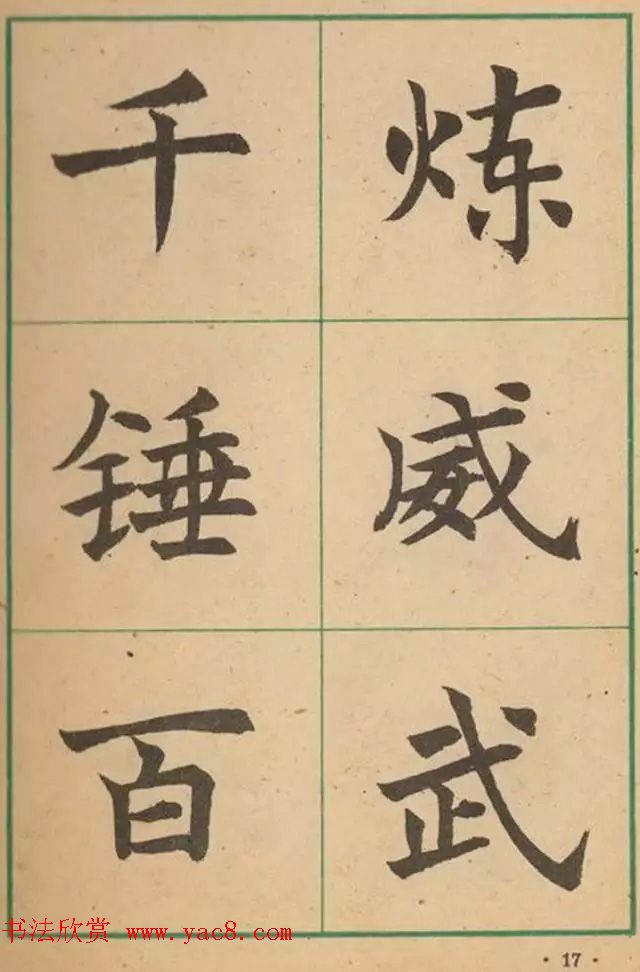 千锤百
炼威武
书法欣赏 www.yac8.com
· 17 ·